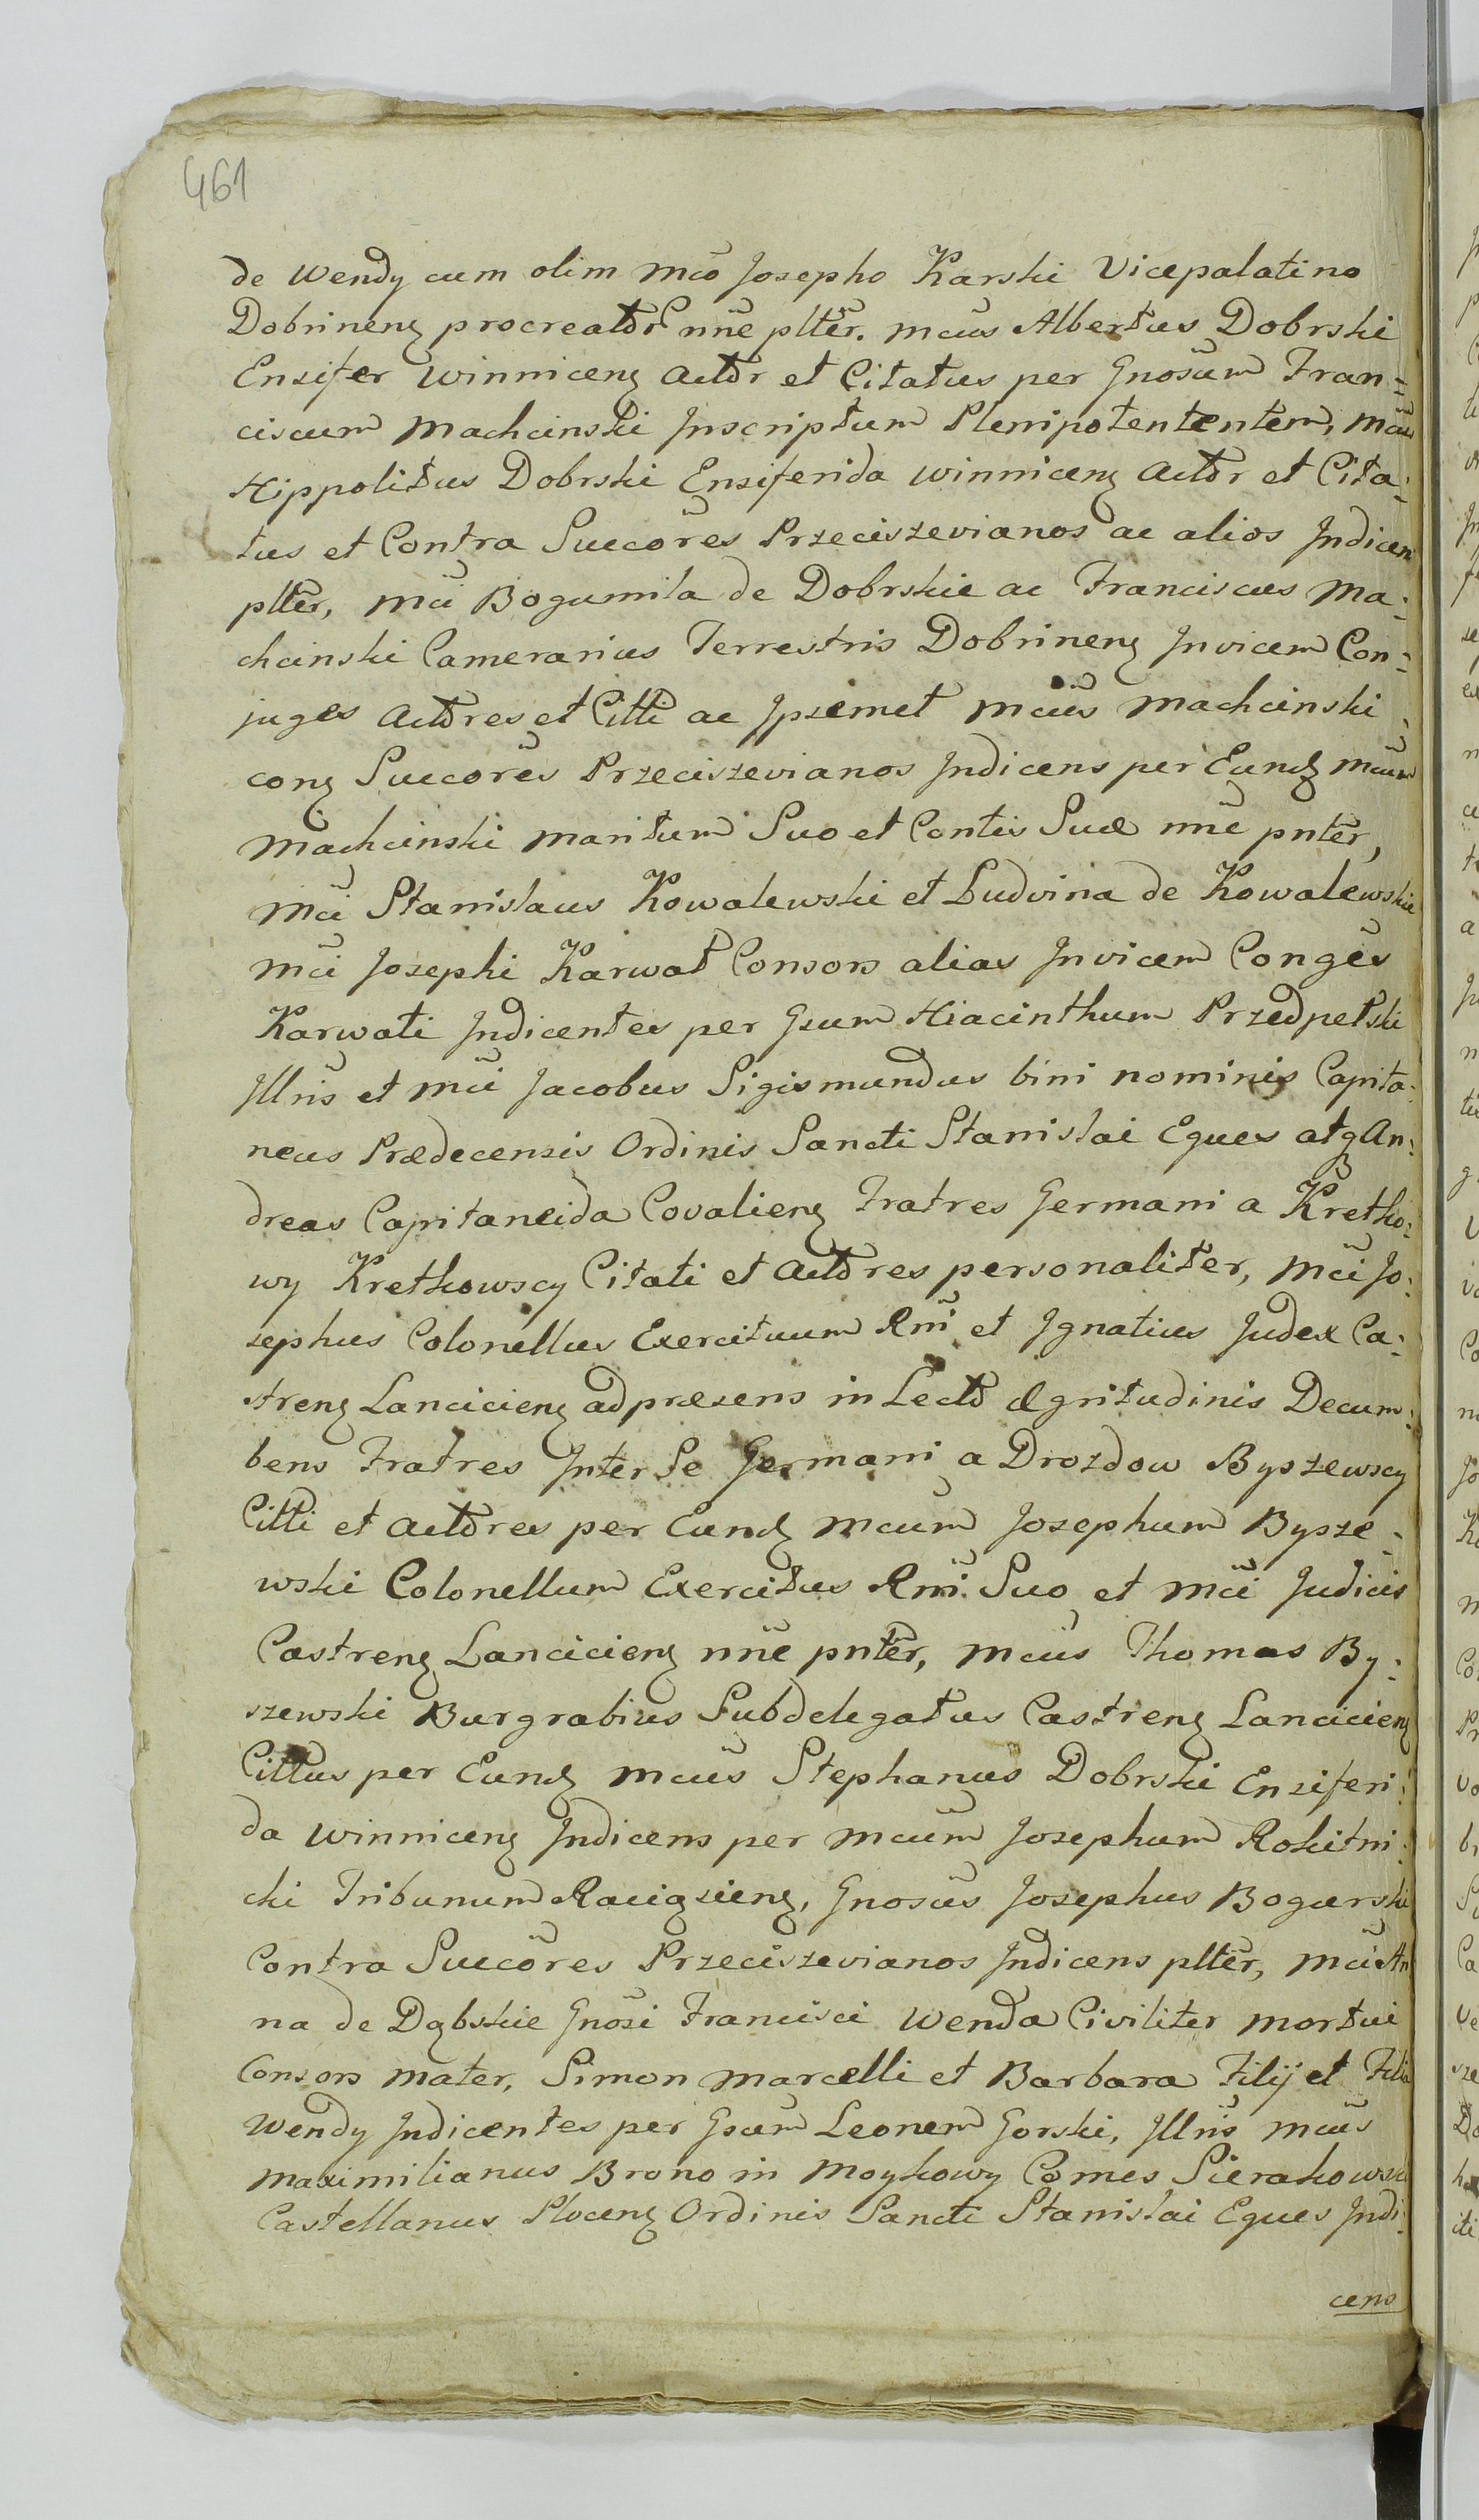 461
de Wendy cum olim Mco Josepho Karski Vicepalatino
Dobrinenȝ procreator nne plter. Mcus Albertus Dobrski
Ensifer Winnicenȝ Actor et Citatus per Gnosum Fran=
ciscum Machcinski Inscriptum Plenipotententem, Mcus
Hippolitus Dobrski Ensiferida Winnicenȝ Actor et Cita=
tus et Contra Succores Przeciszevianos ac alios Indicen
plter, Mci Bogumila de Dobrskie ac Franciscus Ma=
chcinski Camerarius Terrestris Dobrinenȝ Invicem Con=
juges Actores et Citti ac Ipsemet Mcus Machcinski
conȝ Succores Przeciszevianos Indicens per Eundȝ Mcum
Machcinski maritum Suo et Contis Suæ nne pnter,
Mci Stanislaus Kowalewski et Ludvina de Kowalewskie
Mci Josephi Karwat Consors alias Invicem Conges
Karwati Indicentes per Gsum Hiacinthum Przedpelski
Illris et Mci Jacobus Sigismundus bini nominis Capita=
neus Prædecensis Ordinis Sancti Stanislai Eques atqȝ An=
dreas Capitaneida Covalienȝ Fratres Germani a Kretko=
wy Kretkowscy Citati et Actores personaliter, Mci Jo=
sephus Colonellus Exercituum Rni et Ignatius Judex Ca=
strenȝ Lancicienȝ ad præsens in Lecto ægritudinis Decum=
bens Fratres Inter Se Germani a Drozdow Byszewscy
Citti et Actores per Eundȝ Mcum Josephum Bysze=
wski Colonellum Exercitus Rni Suo et Mci Judicis
Castrenȝ Lancicienȝ nne pnter, Mcus Thomas By=
szewski Burgrabius Subdelegatus Castrenȝ Lancicienȝ
Cittus per Eundȝ Mcus Stephanus Dobrski Ensiferi=
da Winnicenȝ Indicens per Mcum Josephum Rokitni=
cki Tribunum Raciązienȝ, Gnosus Josephus Bogurski
Contra Succores Przeciszevianos Indicens plter, Mci An
na de Dąbskie Gnosi Francisci Wenda Civiliter mortui
Consors Mater, Simon Marcelli et Barbara Filij et Filia
Wendy Indicentes per Gsum Leonem Gorski, Illris Mcus
Maximilianus Brono in Moykowy Comes Sierakowski
Castellanus Plocenȝ Ordinis Sancti Stanislai Eques Indi=
cens